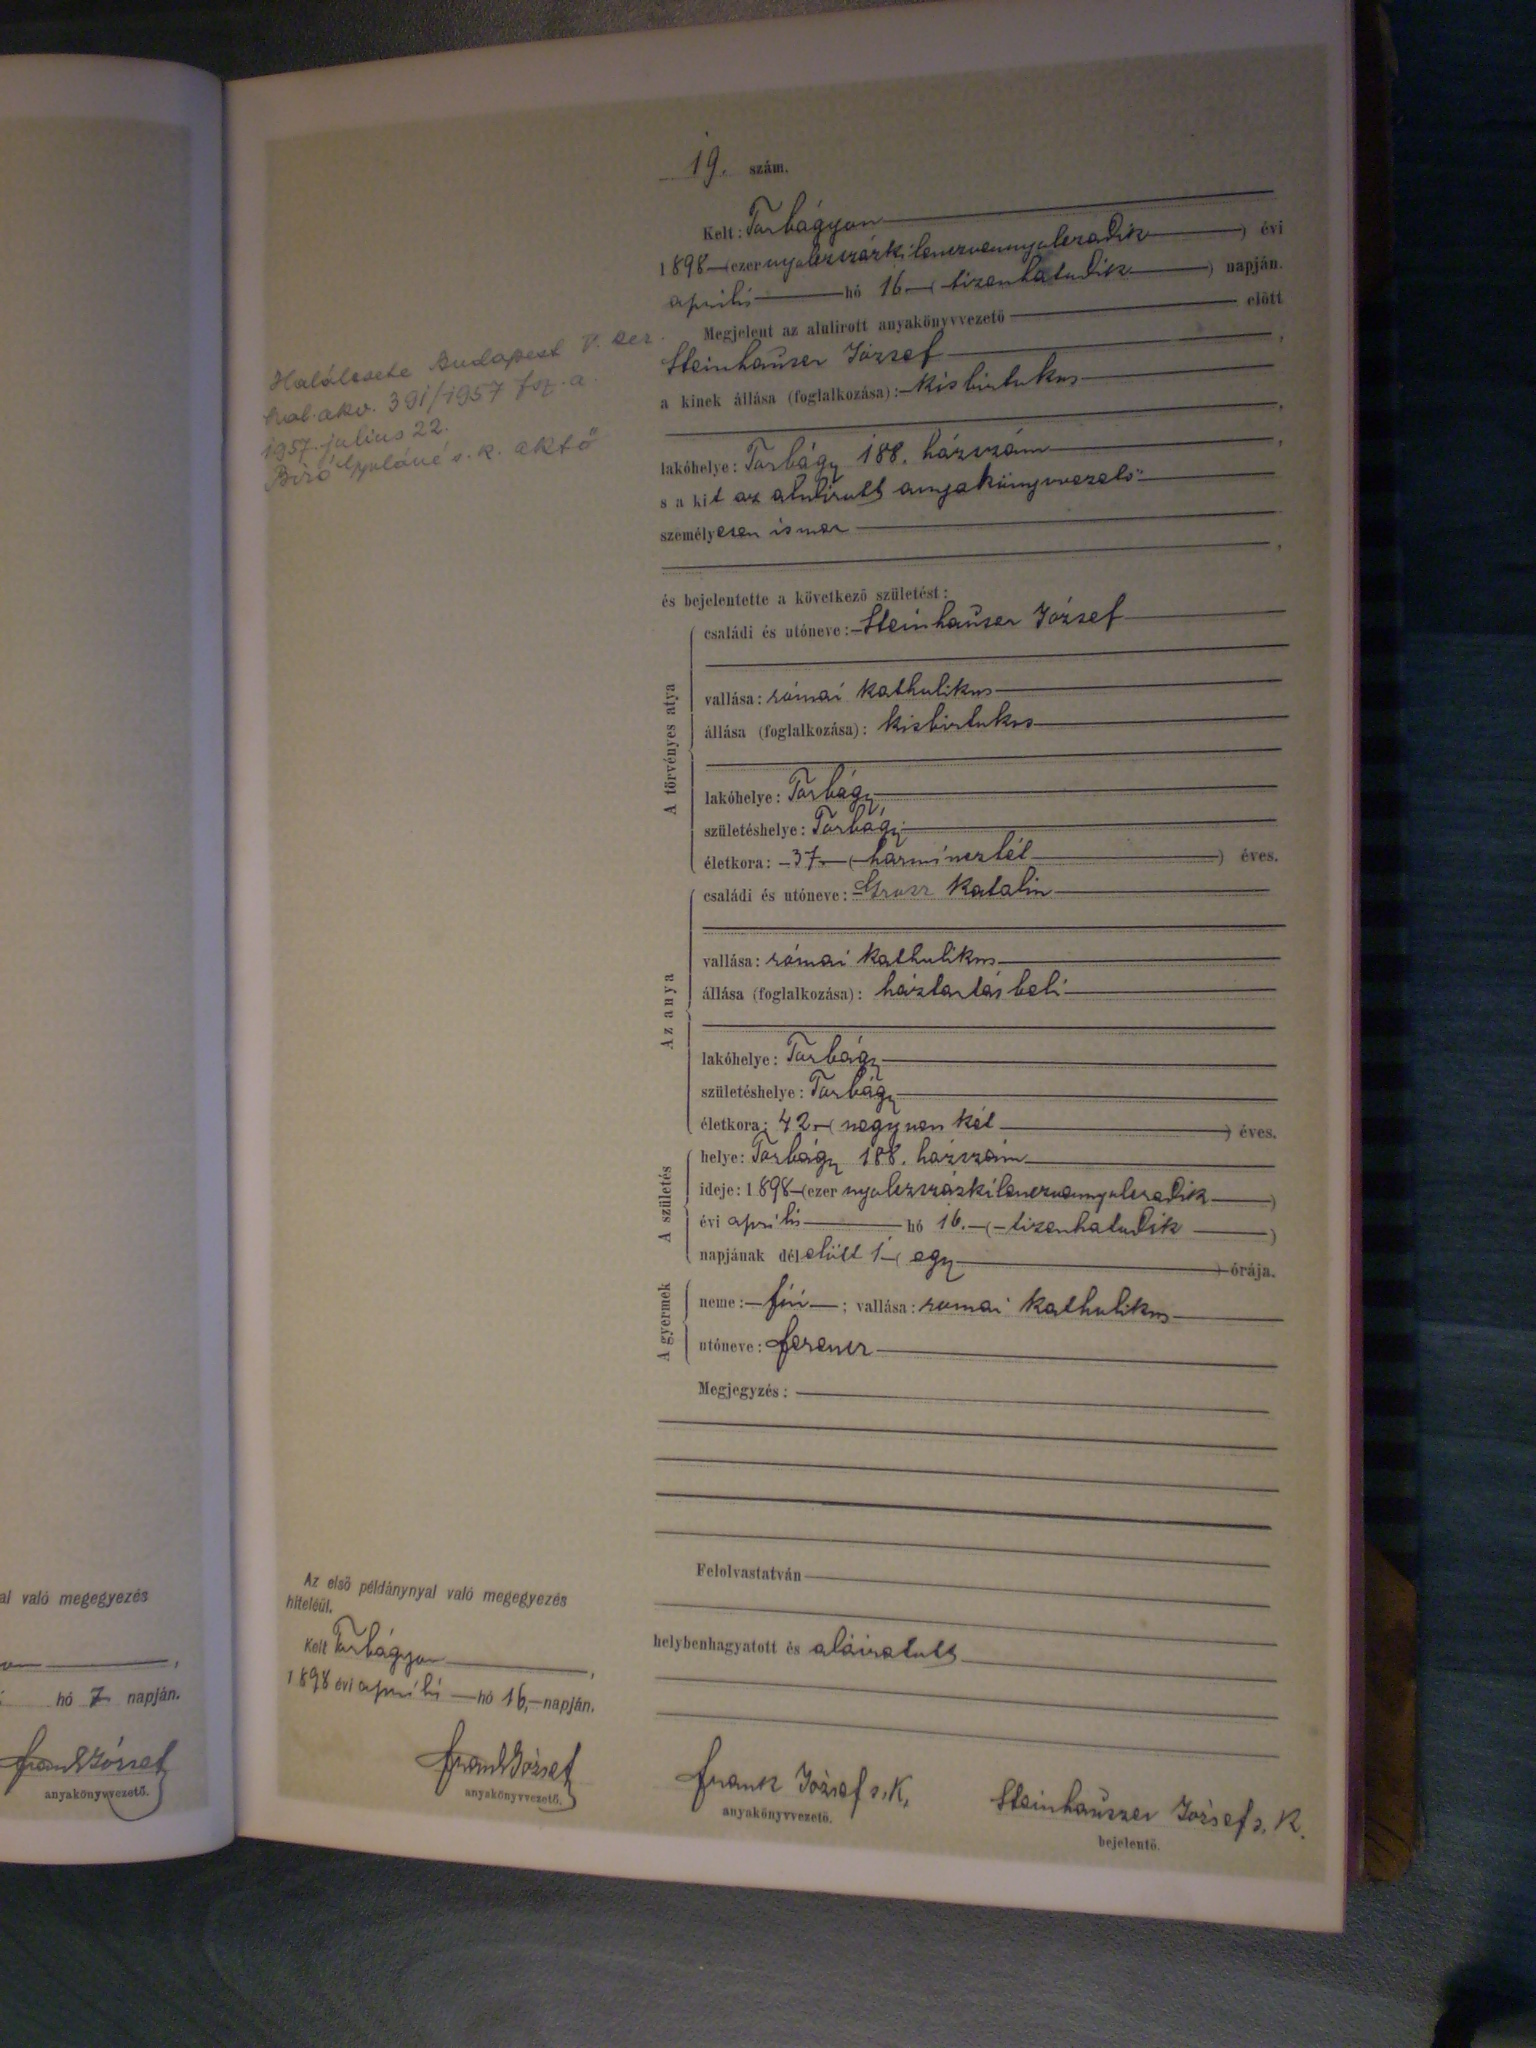 19. szám.
Kelt: Torbágyon
1898 (ezer nyolczszázkilenczvennyolczadik) évi
április hó 16 (tizenhatodik) napján.
Megjelent az alulirott anyakönyvvezető előtt
Steinhauser József,
a kinek állása (foglalkozása): kisbirtokos
,
lakóhelye: Torbágy 188. házszám,
s a kit az alulirott anyakönyvvezető
személyesen ismer
,
és bejelentette a következő születést:
A törvényes atya
családi és utóneve: Steinhauser József
vallása: római katholikus
állása (foglalkozása): kisbirtokos
lakóhelye: Torbágy
születéshelye: Torbágy
életkora: 37 (harminczhét) éves.
Az anya
családi és utóneve: Grosz Katalin
vallása: római katholikus
állása (foglalkozása): háztartásbeli
lakóhelye: Torbágy
születéshelye: Torbágy
életkora: 42 (negyven két) éves.
A születés
helye: Torbágy 188. házszám
ideje: 1898 (ezer nyolczszázkilenczvennyolczadik)
évi április hó 16. (tizenhatodik)
napjának délelőtt 1 (egy) órája.
A gyermek
neme: fiú; vallása: romai katholikus
utóneve: Ferencz
Megjegyzés:
Felolvastatván
helybenhagyatott és aláiratott
Frank József s. K.
anyakönyvvezető.
Steinhauszer József s. K.
bejelentő.
Halálesete Budapest V. ker.
hal. akv. 391/1957 fsz. a.
1957. julius 22.
Biró Gyuláné s. k. aktő
Az első példánynyal való megegyezés
hiteléül.
Kelt Torbágyon,
1898 évi április hó 16, napján.
Frank József
anyakönyvvezető.
al való megegyezés
on,
hó 7 napján.
Frank József
anyakönyvvezető.